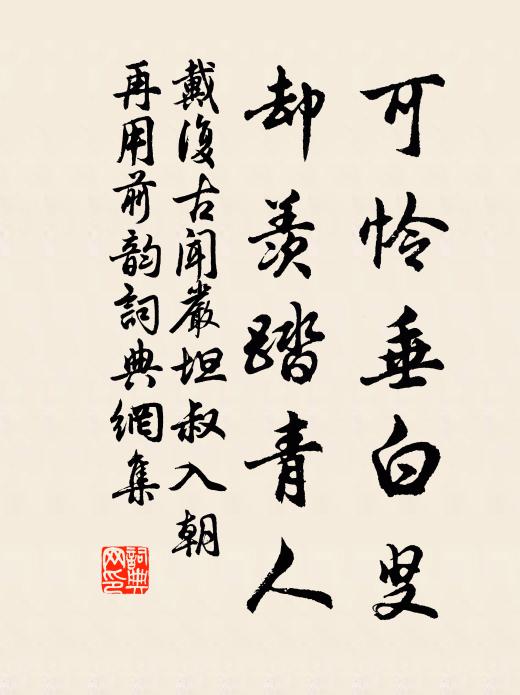 可怜垂白叟
却羡踏青人
戴復古聞嚴坦叔入朝
再用前韵詞典網集
詞典网印